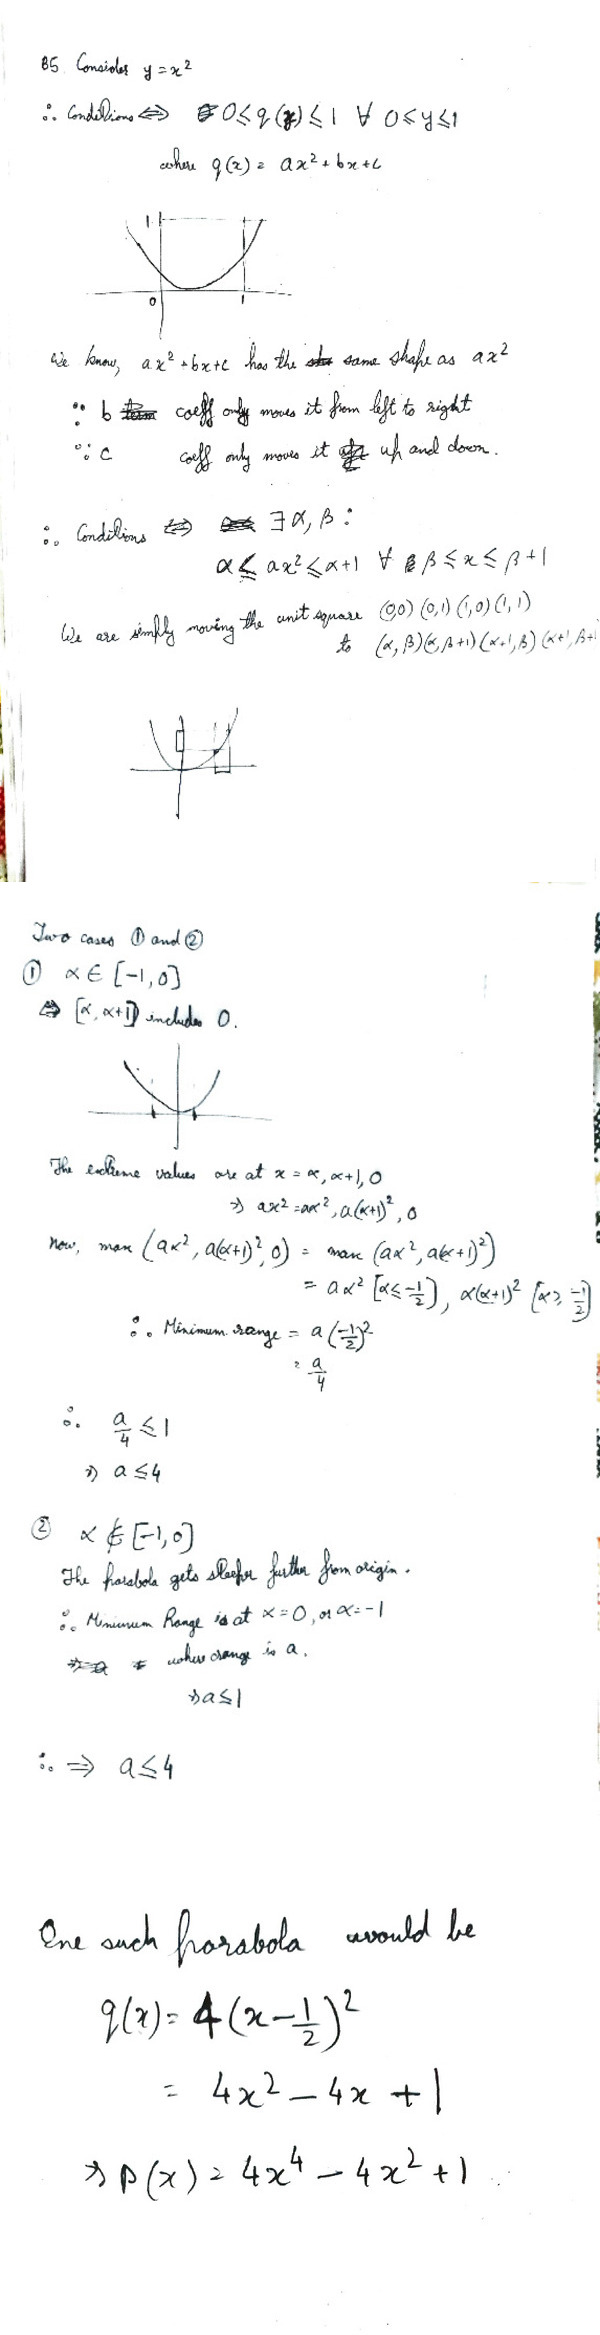 B5. Consider y = x²
∴ Conditions ⇔ 0 ≤ q(y) ≤ 1 ∀ 0 ≤ y ≤ 1
where q(x) = ax² + bx + c
1
0 1
We know, ax² + bx + c has the same shape as ax²
∵ b coeff only moves it from left to right
∵ c coeff only moves it up and down.
∴ Conditions ⇔ ∃ α, β :
α ≤ ax² ≤ α+1 ∀ β ≤ x ≤ β+1
We are simply moving the unit square (0,0) (0,1) (1,0) (1,1)
to (α, β) (α, β+1) (α+1, β) (α+1, β+1
Two cases ① and ②
① α ∈ [-1, 0]
⇔ [α, α+1] includes 0.
The extreme values are at x = α, α+1, 0
⇒ ax² = aα², a(α+1)², 0
Now, max (aα², a(α+1)², 0) = max (aα², a(α+1)²)
= aα² [α ≤ -1/2], α(α+1)² [α ≥ -1/2]
∴ Minimum range = a(-1/2)²
= a/4
∴ a/4 ≤ 1
⇒ a ≤ 4
② α ∉ [-1, 0]
The parabola gets steeper further from origin.
∴ Minimum Range is at α = 0, or α = -1
where range is a.
⇒ a ≤ 1
∴ ⇒ a ≤ 4
One such parabola would be
q(x) = 4(x - 1/2)²
= 4x² - 4x + 1
⇒ p(x) = 4x⁴ - 4x² + 1